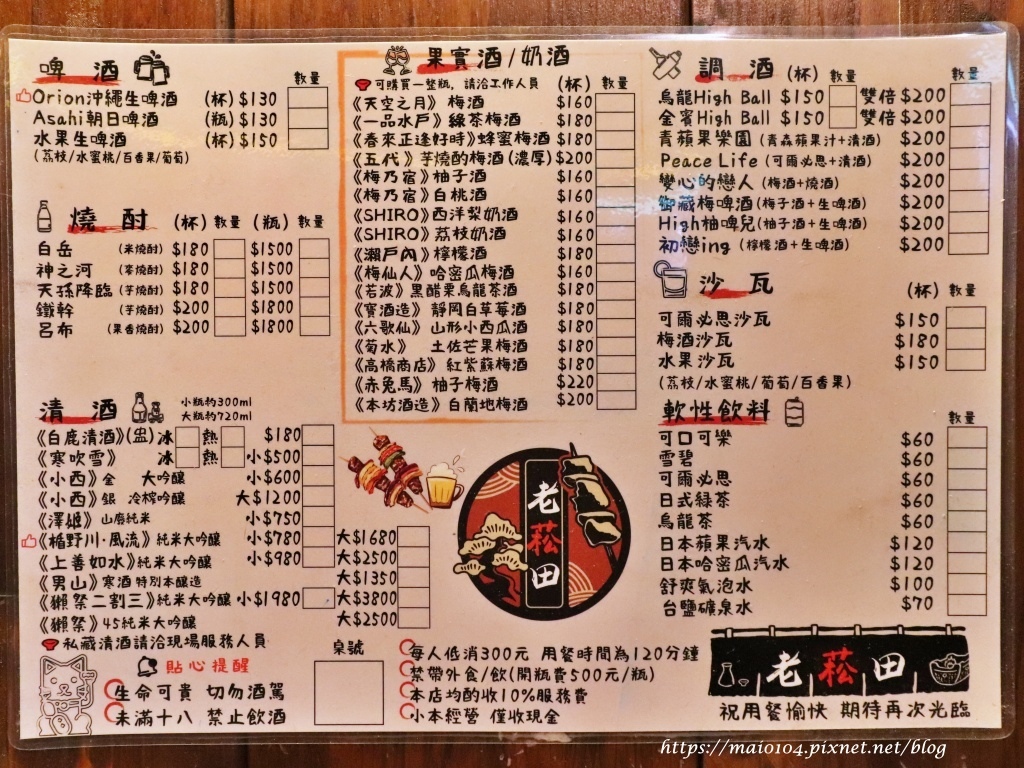 啤酒 數量
Orion沖繩生啤酒 (杯) $130
Asahi朝日啤酒 (瓶) $130
水果生啤酒 (杯) $150
(荔枝/水蜜桃/百香果/葡萄)
燒酎 (杯) 數量 (瓶) 數量
白岳 (米燒酎) $180 $1500
神之河 (麥燒酎) $180 $1500
天孫降臨 (芋燒酎) $180 $1500
鐵幹 (芋燒酎) $200 $1800
呂布 (果香燒酎) $200 $1800
清酒 小瓶約300ml
大瓶約720ml
《白鹿清酒》(盅) 冰 熱 $180
《寒吹雪》 冰 熱 小$500
《小西》金 大吟釀 小$600
《小西》銀 冷榨吟釀 大$1200
《澤姬》山廢純米 小$750
《楯野川·風流》純米大吟釀 小$780 大$1680
《上善如水》純米大吟釀 小$980 大$2500
《男山》寒酒 特別本釀造 大$1350
《獺祭二割三》純米大吟釀 小$1980 大$3800
《獺祭》45純米大吟釀 大$2500
私藏清酒請洽現場服務人員
貼心提醒
生命可貴 切勿酒駕
未滿十八 禁止飲酒
桌號
果實酒/奶酒
可購買一整瓶, 請洽工作人員 (杯) 數量
《天空之月》 梅酒 $160
《一品水戶》 綠茶梅酒 $160
《春來正逢好時》蜂蜜梅酒 $180
《五代》芋燒酌梅酒(濃厚) $200
《梅乃宿》柚子酒 $160
《梅乃宿》白桃酒 $160
《SHIRO》西洋梨奶酒 $160
《SHIRO》荔枝奶酒 $160
《瀨戶內》檸檬酒 $180
《梅仙人》哈密瓜梅酒 $160
《若波》黑醋栗烏龍茶酒 $180
《寶酒造》靜岡白草莓酒 $180
《六歌仙》山形小西瓜酒 $180
《菊水》 土佐芒果梅酒 $180
《高橋商店》紅紫蘇梅酒 $180
《赤兔馬》柚子梅酒 $220
《本坊酒造》白蘭地梅酒 $200
老菘田
每人低消300元 用餐時間為120分鐘
禁帶外食/飲(開瓶費500元/瓶)
本店均酌收10%服務費
小本經營 僅收現金
調酒 (杯) 數量 數量
烏龍High Ball $150 雙倍 $200
金賓High Ball $150 雙倍 $200
青蘋果樂園 (青森蘋果汁+清酒) $200
Peace Life (可爾必思+清酒) $200
變心的戀人 (梅酒+燒酒) $200
御藏梅啤酒 (梅子酒+生啤酒) $200
High柚啤兒 (柚子酒+生啤酒) $200
初戀ing (檸檬酒+生啤酒) $200
沙瓦 (杯) 數量
可爾必思沙瓦 $150
梅酒沙瓦 $180
水果沙瓦 $150
(荔枝/水蜜桃/葡萄/百香果)
軟性飲料 數量
可口可樂 $60
雪碧 $60
可爾必思 $60
日式綠茶 $60
烏龍茶 $60
日本蘋果汽水 $120
日本哈密瓜汽水 $120
舒爽氣泡水 $100
台鹽礦泉水 $70
老菘田
祝用餐愉快 期待再次光臨
https://maio104.pixnet.net/blog